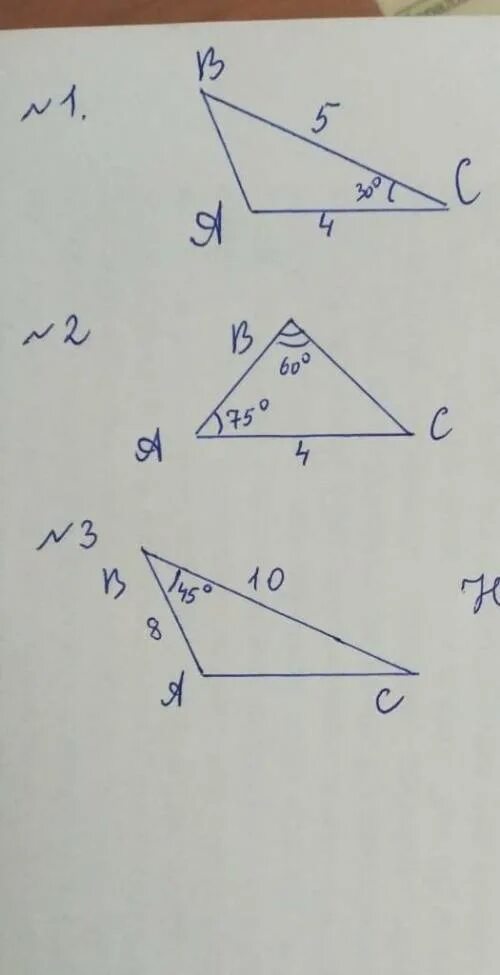 №1.
B
5
30° C
A 4
№2
B
60°
75°
A 4 C
№3
B 45° 10
8
A C
Н